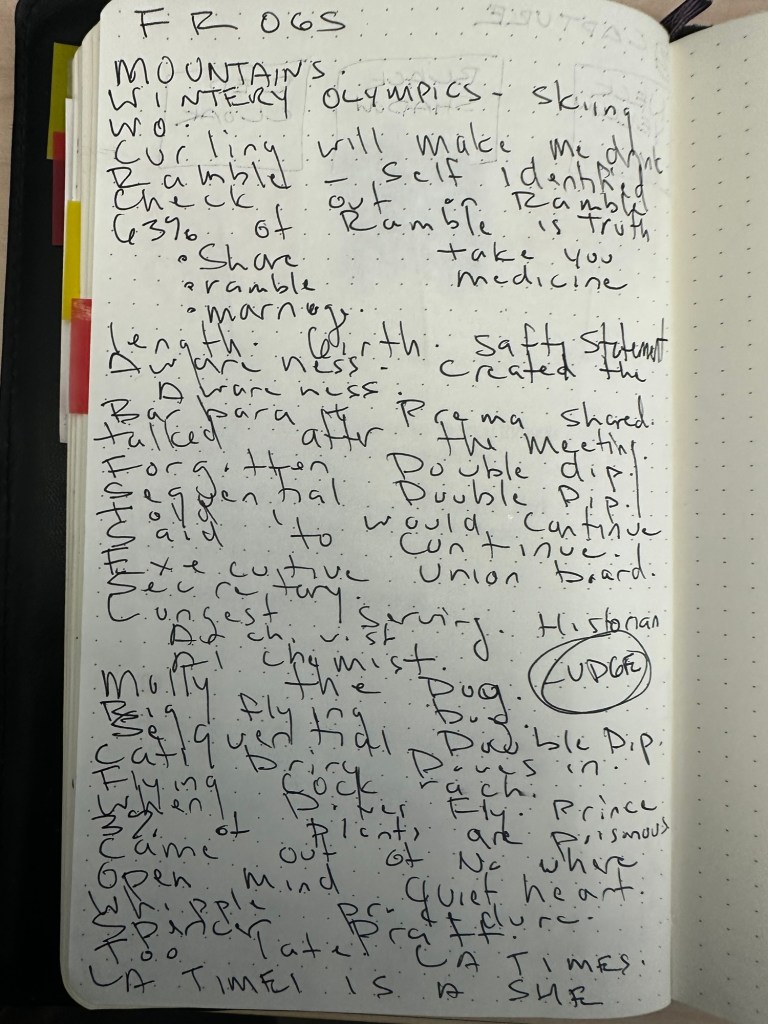 FROGS
MOUNTAINS.
WINTERY OLYMPICS - Skiing
WO.
Curling will make me drink
Ramble - Self Identified
Check out on Ramble
63% of Ramble is Truth
• Share take you
• ramble medicine
• marriage.
length. Girth. Safty Statement
Awareness - Created the
Awareness.
Barbara & Prema shared.
talked after the meeting.
Forgotten Double dip.
Sequential Double Dip.
would continue
Said to continue.
Executive Union Board.
Secretary.
Longest Serving. Historian
Archivist
Alchemist. FUDGE
Molly the Dog.
Big Flying Dog.
Sequential Double Dip.
Doves in.
Flying Cock rach.
When Fly. Prince
% of Plants are
Came out of No where
Open Mind Quiet heart.
Whipple
Spencer Pratt.
Too late LA TIMES.
LA TIMEI IS A SHE